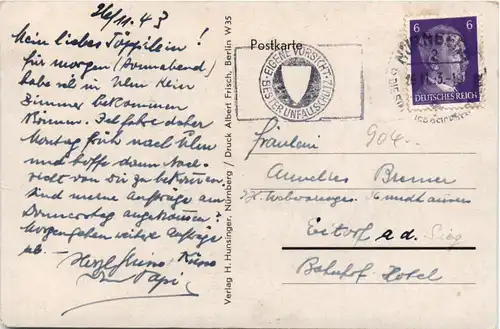 26/11.43
Mein lieber Töffilein!
für morgen (Sonnabend)
habe ich in Ulm kein
Zimmer bekommen
können. Ich fahre daher
Montag früh nach Ulm
und hoffe dann Nach-
richt von Dir zu bekommen.
Sind meine Aufträge am
Donnerstag angekommen?
Morgen gehen weitere Aufträge
ab. Herzl. Kuss
Dein Papi
Verlag H. Hunsinger, Nürnberg / Druck Albert Frisch, Berlin W 35
Postkarte
EIGENE VORSICHT
BESTER UNFALLSCHUTZ
6 6
DEUTSCHES REICH
Fräulein 904
Annelies Bremer
Eitorf a.d. Sieg
Bahnhof-Hotel